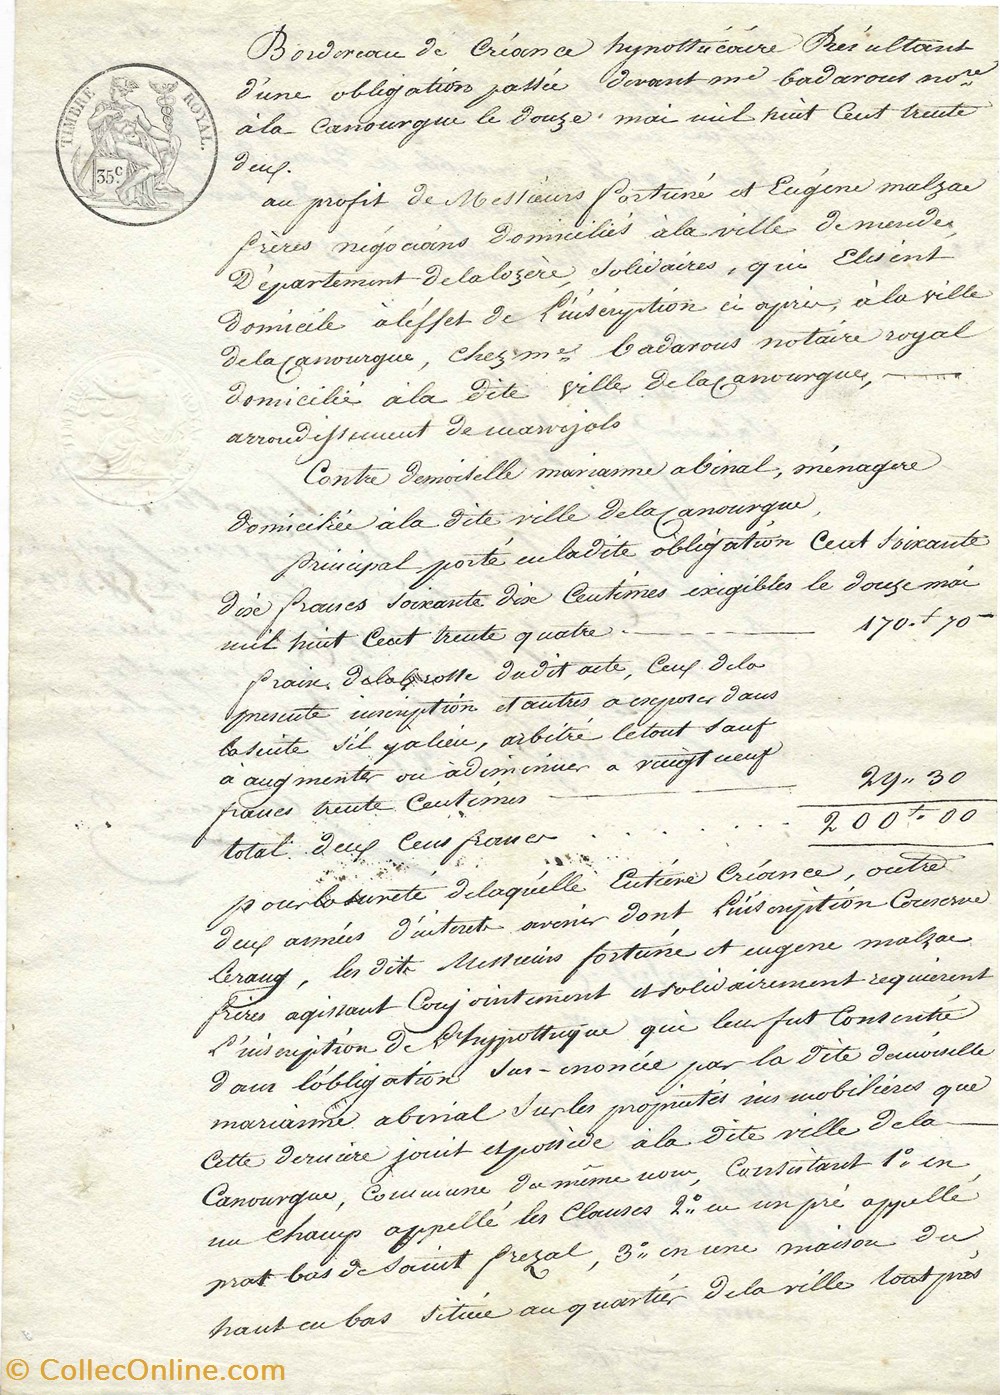 Bordereau de Créance hypothécaire Résultant
d'une obligation passée devant me badarous nore
à la Canourgue le douze mai mil huit Cent trente
deux.
TIMBRE ROYAL.
35c
au profit de Messieurs fortuné et Eugène malzac
frères négocians domiciliés à la ville de mende,
Département de la lozère, solidaires, qui Elisent
domicile à l'éffet de L'inscription ci après, à la ville
de la Canourgue, chez me badarous notaire royal
domicilié à la dite ville de la Canourgue,
arrondissement de marvejols
Contre demoiselle marianne abinal, ménagere
domiciliée à la dite ville de la Canourgue,
principal porté en la dite obligation Cent soixante
dix francs soixante dix Centimes exigibles le douze mai
mil huit Cent trente quatre. 170.f 70
frais de la Grosse du dit acte, Ceux de la
presente inscription et autres a exposer dans
la suite s'il y a lieu, arbitré le tout sauf
à augmenter ou à diminuer a vaingt neuf
francs trente Centimes 29" 30
total deux Cens francs 200f.00
pour la sureté de laquelle Entiére Créance, outre
deux années d'interets avenir dont L'inscription Conserve
le rang, les dits Messieurs fortuné et eugene malzac
frères agissant Conjointement et solidairement requièrent
L'inscription de L'hyppothèque qui leur fut Consentie
dans l'obligation sus-énoncée par la dite demoiselle
marianne abinal sur les propriétés immobiliéres que
Cette derniére jouit et possède à la dite ville de la
Canourgue, Commune du même nom, Consistant 1o. en
un champ appellé les Clauses 2o. en un pré appellé
prat bas de Saint frezal, 3o. en une maison du
haut en bas située au quartier de la ville tout près
© CollecOnline.com